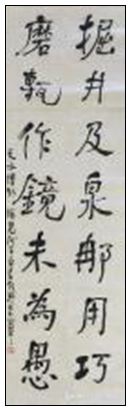 掘井及泉邮用巧
磨甎作鏡未為愚